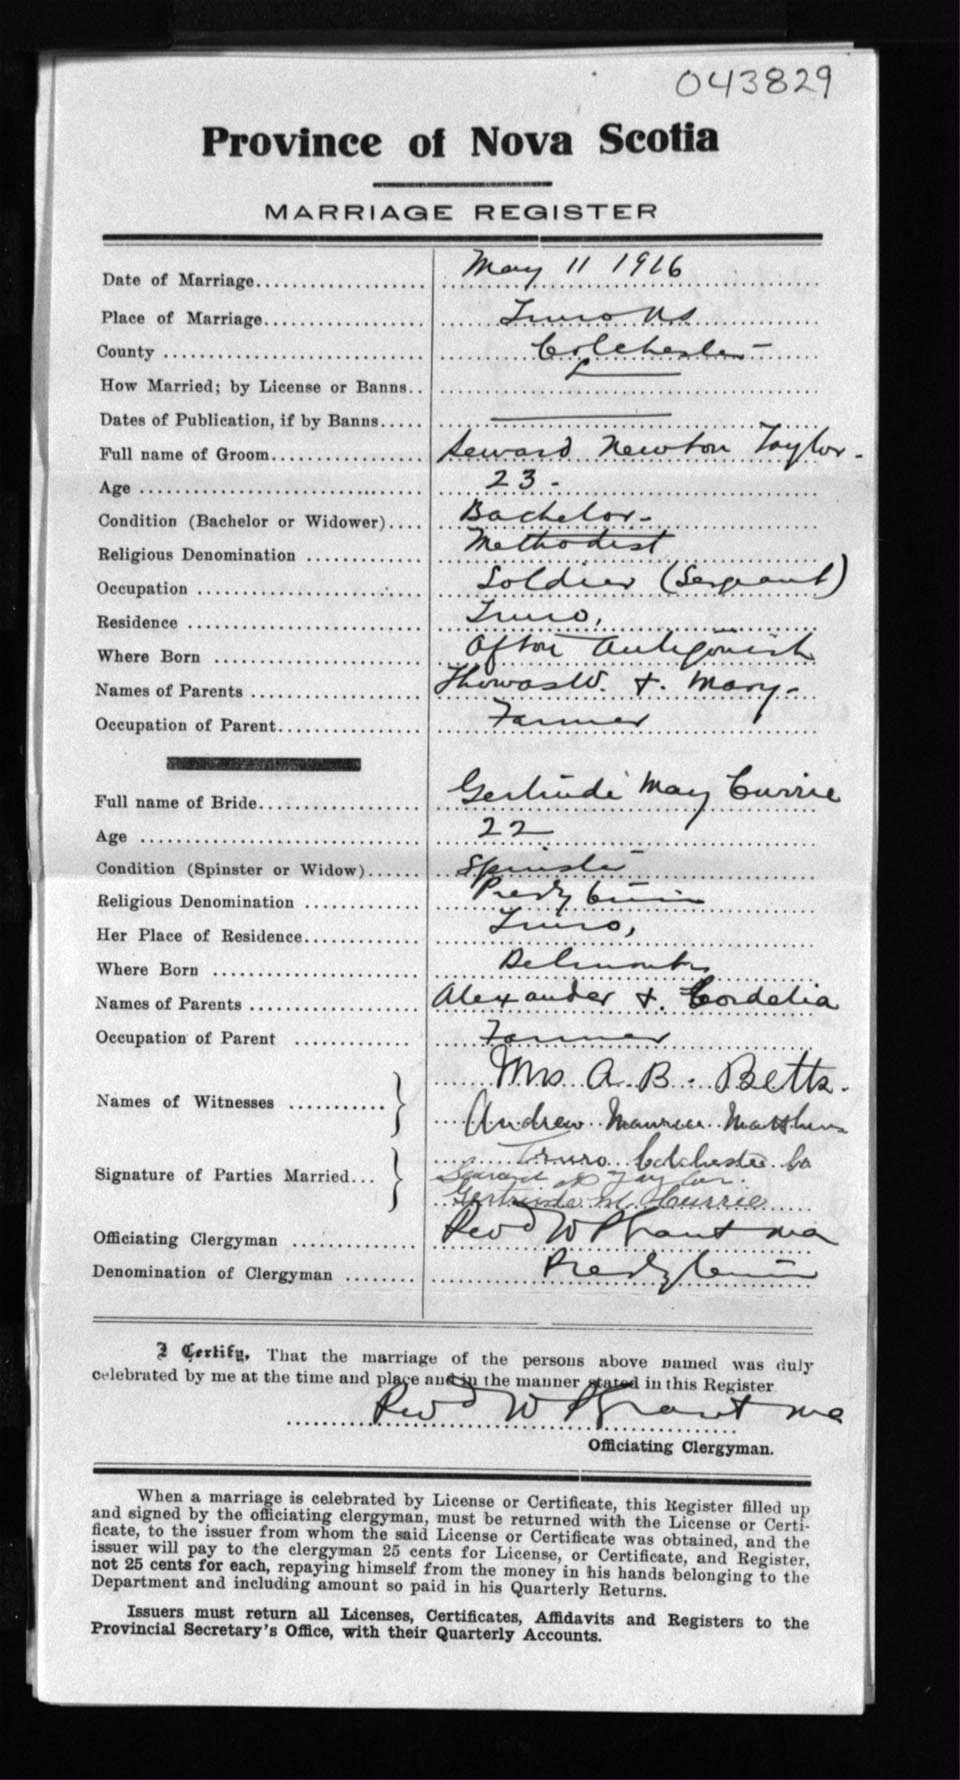 043829
Province of Nova Scotia
MARRIAGE REGISTER
Date of Marriage................... May 11 1916
Place of Marriage.................. Truro NS
County ............................ Colchester
How Married; by License or Banns.. L
Dates of Publication, if by Banns.....
Full name of Groom................. Seward Newton Taylor
Age ............................... 23
Condition (Bachelor or Widower).... Bachelor
Religious Denomination ............ Methodist
Occupation ........................ Soldier (Sergeant)
Residence ......................... Truro,
Where Born ........................ Afton Antigonish
Names of Parents .................. Thomas W. & Mary
Occupation of Parent............... Farmer
Full name of Bride................. Gertrude May Currie
Age ............................... 22
Condition (Spinster or Widow)...... Spinster
Religious Denomination ............ Presbyterian
Her Place of Residence............. Truro,
Where Born ........................ Belmont
Names of Parents .................. Alexander & Cordelia
Occupation of Parent ............. Farmer
Mrs A. B. Betts
Names of Witnesses ...........
Andrew Maurice Matthews
Truro Colchester Co
Signature of Parties Married... Seward N Taylor.
Gertrude M Currie
Officiating Clergyman ............. Revd W P Grant MA
Denomination of Clergyman ........ Presbyterian
I Certify, That the marriage of the persons above named was duly
celebrated by me at the time and place and in the manner stated in this Register
Revd W P Grant MA
Officiating Clergyman.
When a marriage is celebrated by License or Certificate, this Register filled up
and signed by the officiating clergyman, must be returned with the License or Certi-
ficate, to the issuer from whom the said License or Certificate was obtained, and the
issuer will pay to the clergyman 25 cents for License, or Certificate, and Register,
not 25 cents for each, repaying himself from the money in his hands belonging to the
Department and including amount so paid in his Quarterly Returns.
Issuers must return all Licenses, Certificates, Affidavits and Registers to the
Provincial Secretary's Office, with their Quarterly Accounts.